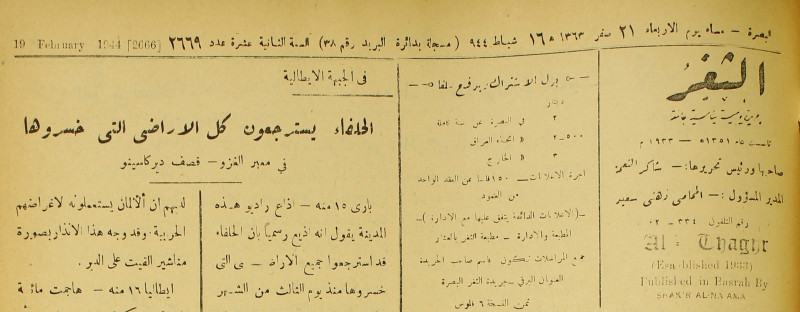 البصرة - مساء يوم الاربعاء ٢١ صفر ١٣٦٣ هـ ١٦ شباط ٩٤٤ ( مسجلة بدائرة البريد رقم ٣٨) السنة الثانية عشرة عدد ٢٦٦٩
19 February 1944 [2666]
الثغر
جريدة يومية سياسية جامعة
تأسست ١٣٥١ هـ — ١٩٣٣ م
صاحبها ورئيس تحريرها:— شاكر النعمة
المدير المسؤول:— المحامي زهني سعيد
رقم التلفون
Al - Thaghr
(Established 1933)
Published in Basrah By
SHAKIR AL-NAAMA
بدل الاشتراك يدفع سلفا
دينار
٢ في البصرة عن سنة كاملة
٢-٥٠٠ « انحاء العراق
٣ « الخارج
اجرة الاعلانات — ١٥٠ فلسا عن العقد الواحد
من العمود
—(الاعلانات الدائمة يتفق عليها مع الادارة)—
المطبعة والادارة — مطبعة الثغر بالعشار
جميع المراسلات تكون باسم صاحب الجريدة
العنوان البرقي — جريدة الثغر البصرة
ثمن النسخة ٦ فلوس
في الجبهة الايطالية
الحلفاء يسترجعون كل الاراضى التى خسروها
في معبر الغزو — قصف دير كاسينو
بارى ١٥ منه — اذاع راديو هذه
المدينة يقول انه اذيع رسميا بان الحلفاء
قد استرجعوا جميع الاراضى التى
خسروها منذ يوم الثالث من الشهر
لديهم ان الألمان يستعملونه لاغراضهم
الحربية. وقد وجه هذا الانذار بصورة
مناشير القيت على الدير.
ايطاليا ١٦ منه — هاجمت مائة